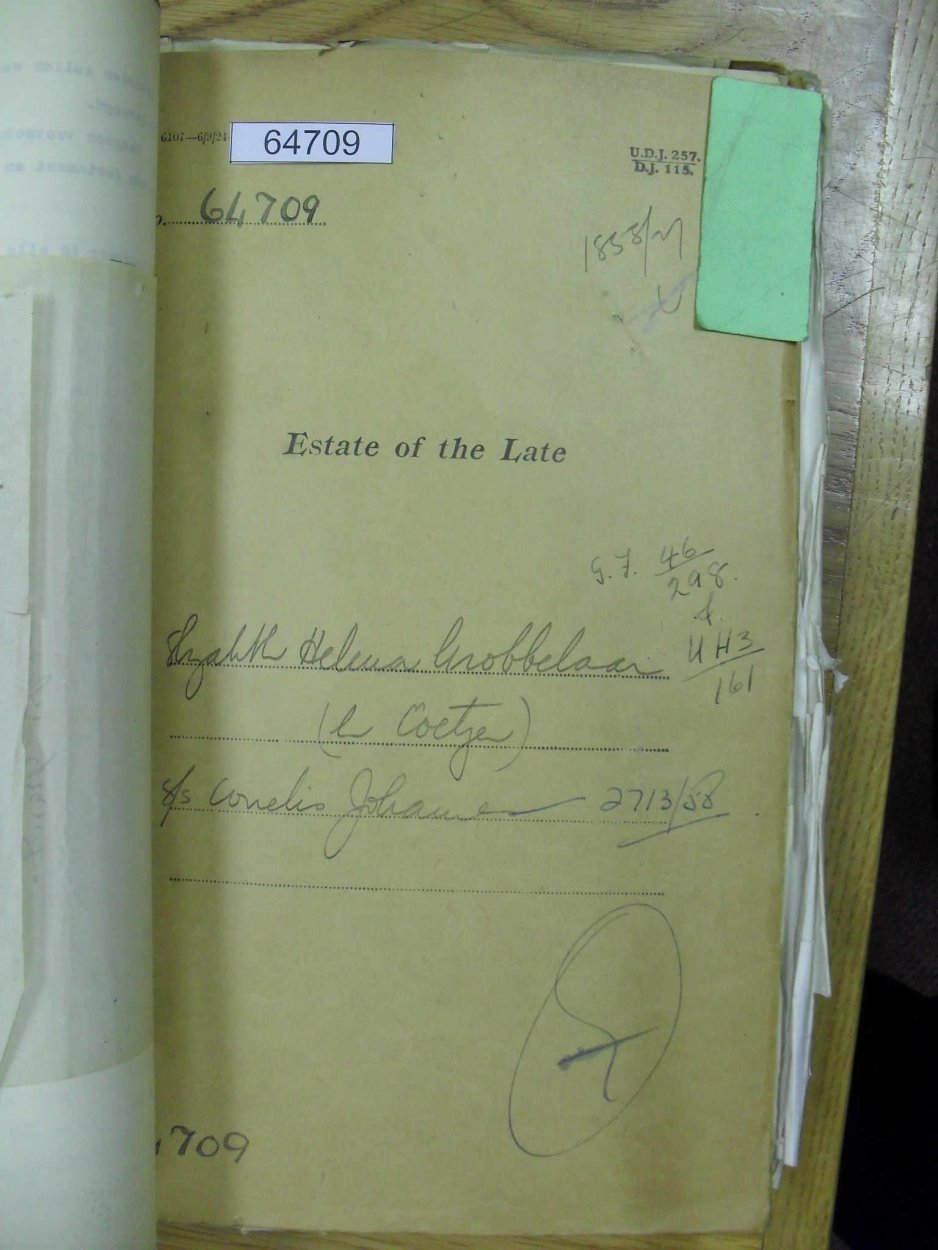 6107—6/9/24
64709
U.D.J. 257.
D.J. 115.
64709
1858/27
Estate of the Late
G.F. 46/298.
&
Elizabeth Helena Grobbelaar
UH3/161
(b Coetzer)
s/s Cornelis Johannes 2713/58
709